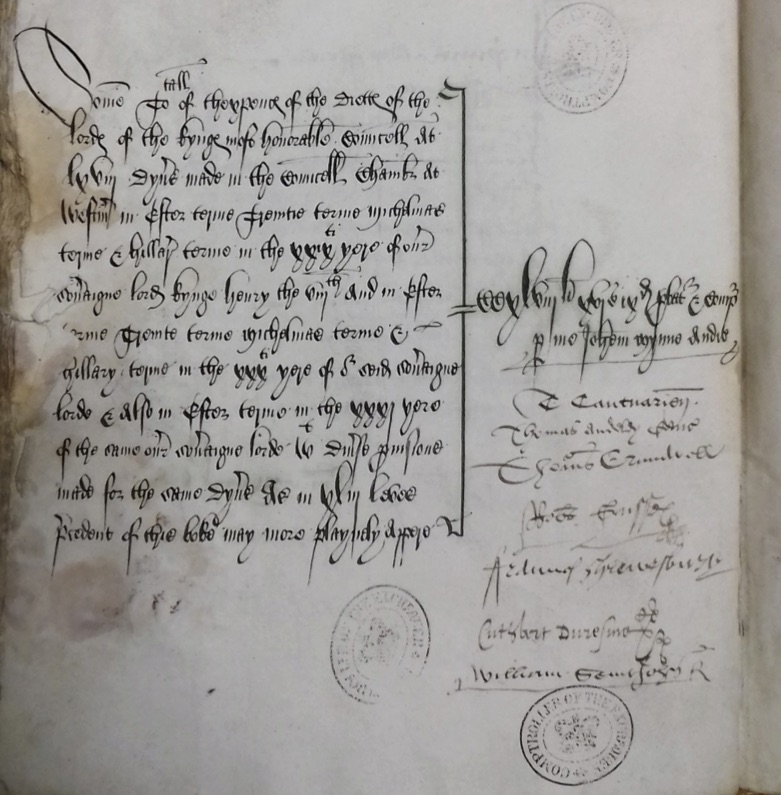 Some To tall of thexpence of the Diette of the
lordę of the kyngę most honorable Councell At
lxviij Dyn's made in the Councell Chambr At
Westm in Ester terme Trenitie terme michelmas
terme & hillary terme in the xxix ti yere of our
soueraigne lorde kynge henry the viijth And in Ester
rme Trenite terme michelmas terme &
hillary terme in the xxx ti yere of or said soueraigne
lorde & Also in Ester terme in the xxxj yere
of the same our soueraigne lorde wt Diuse puisions
made for the same Dyn's As in xliij leves
precedent of this boke may more playnely Appere
p me Johem wynne
T Cantuarien.
Thomas Audeley
Thomas Crumwell
Robt Sussex
Shrewsbury
Cuthbert Duresme
William
COMPTROLLER OF THE EXCHEQUER